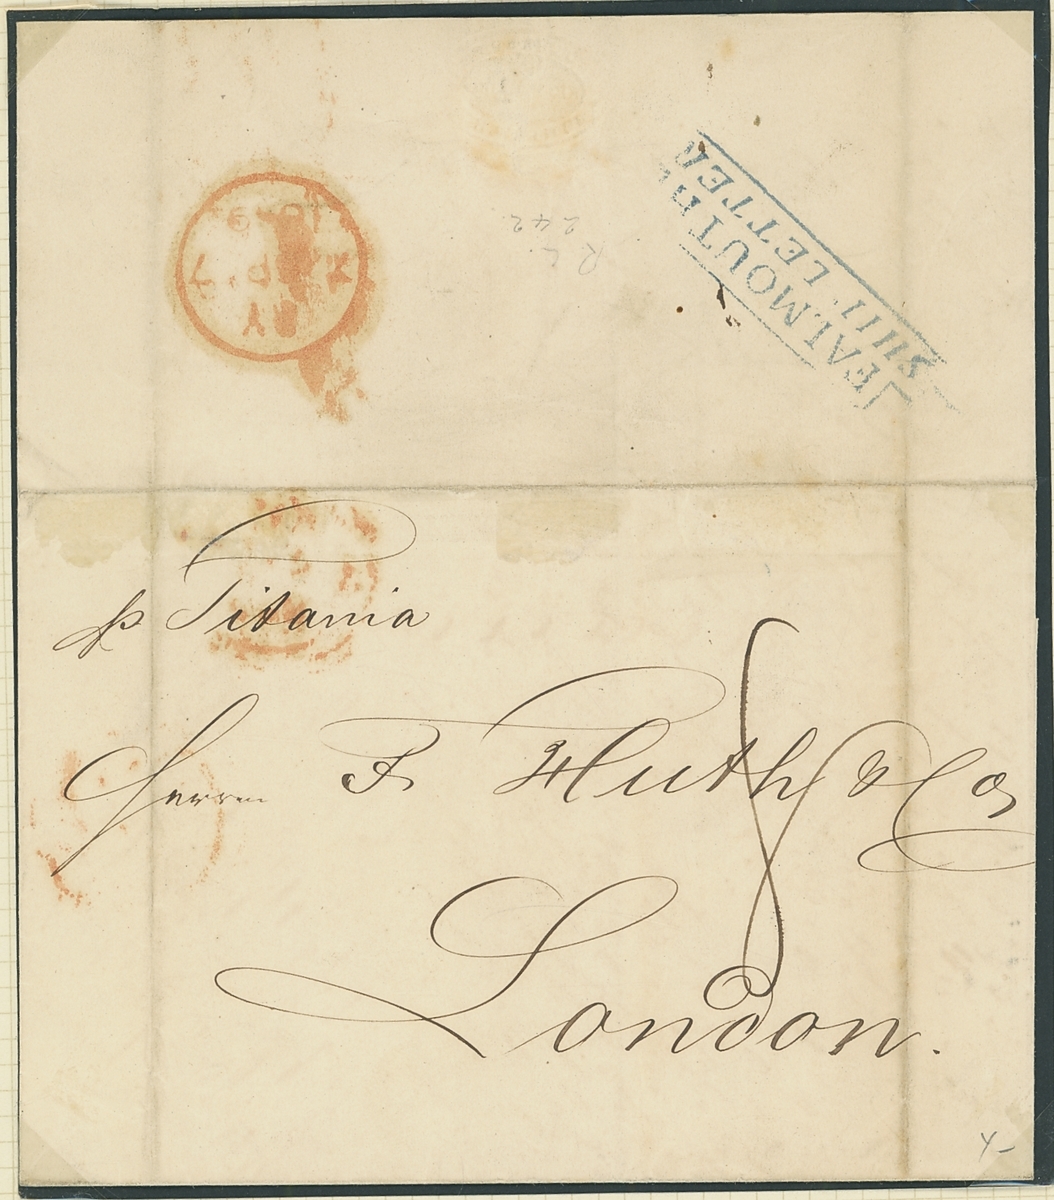 FALMOUTH
SHIP LETTER
R L
242
p Titania
Herrn F Huth & Co
8
London.